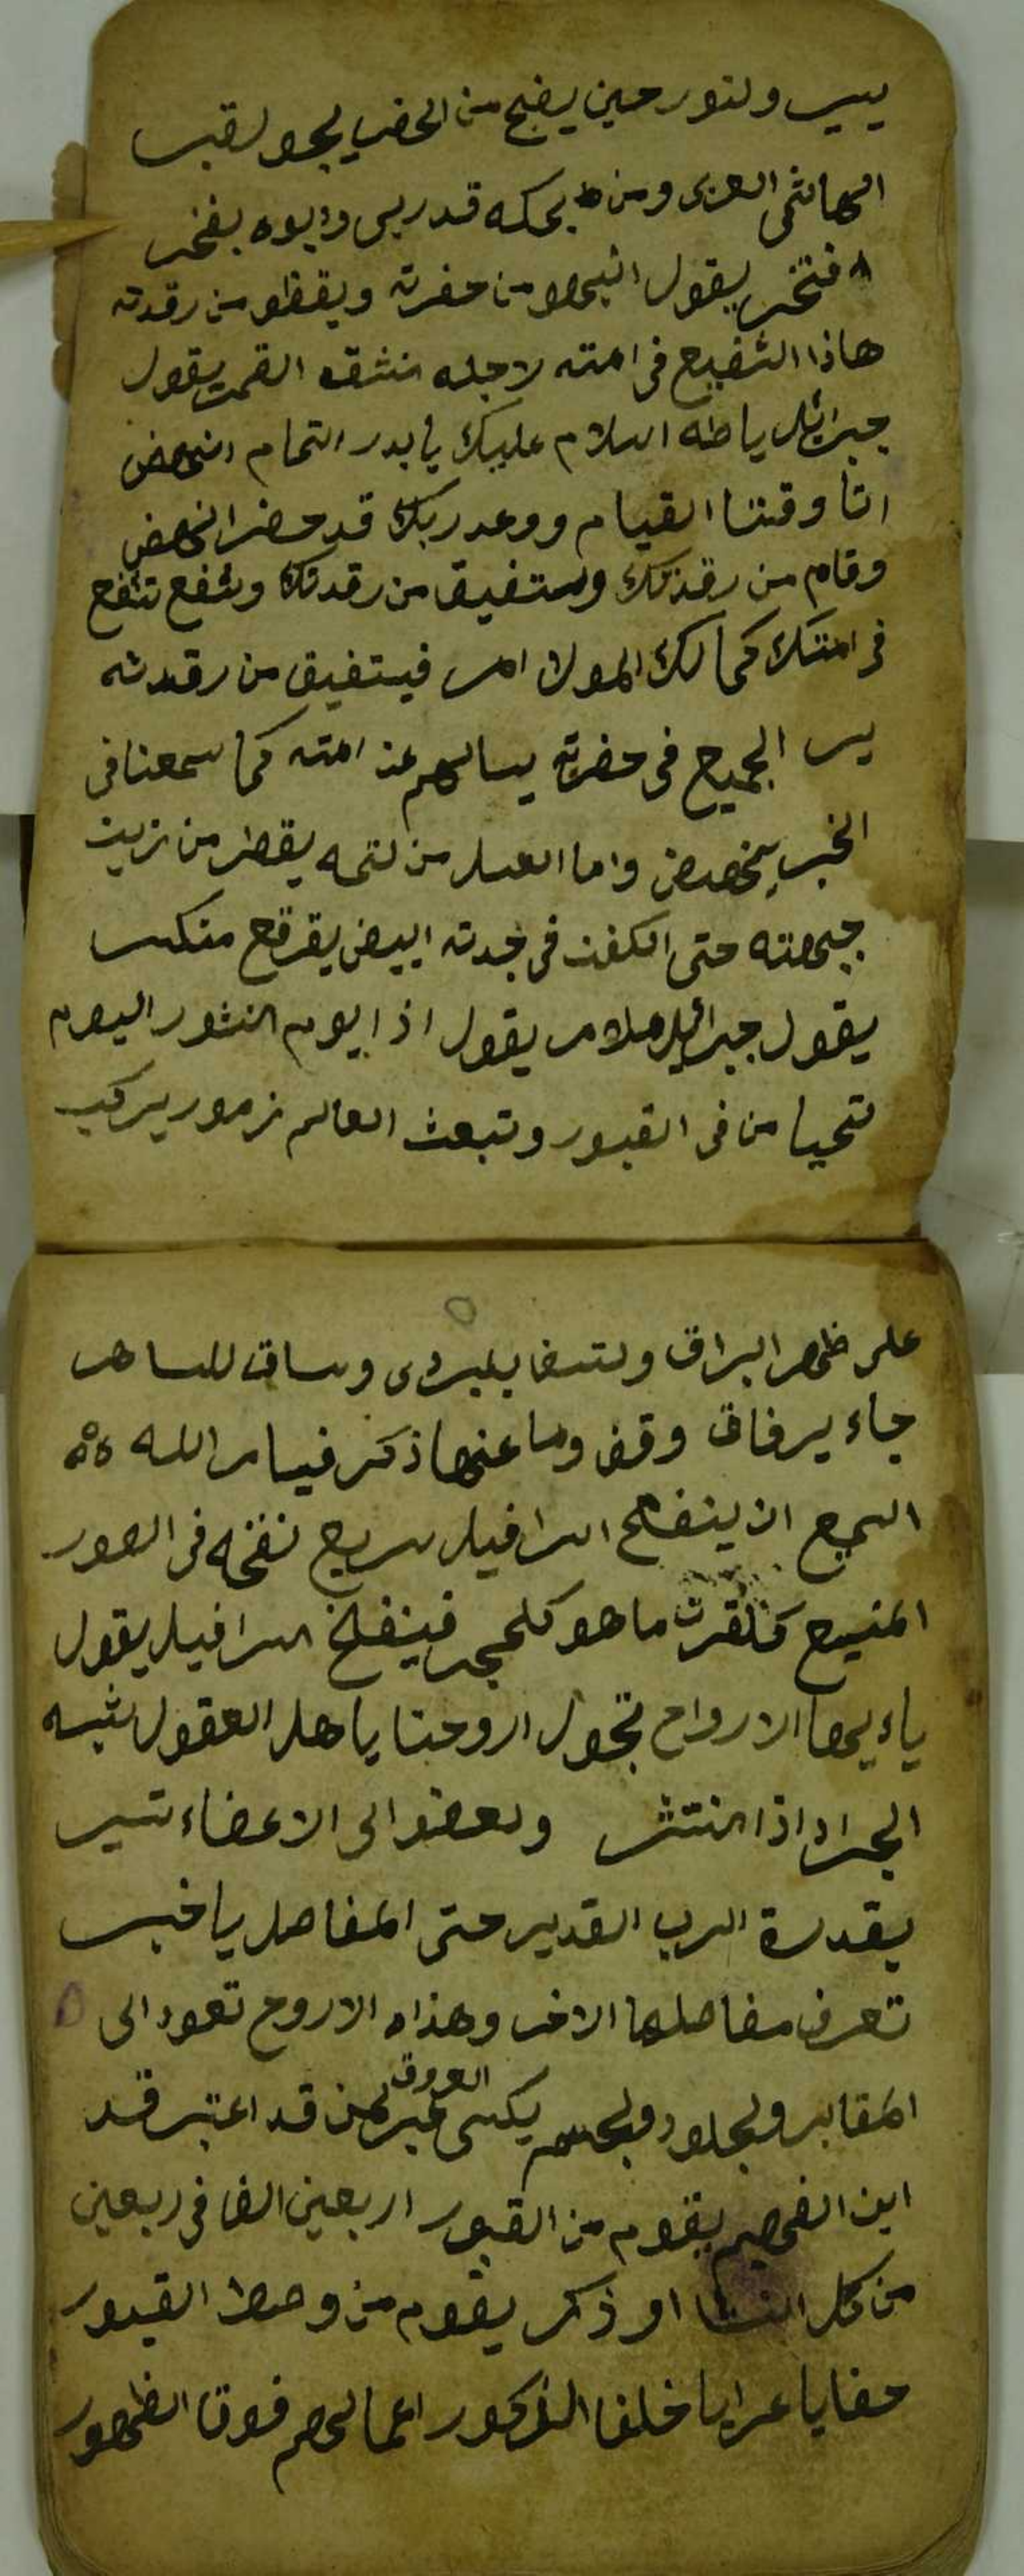 يبي ولنور حين يضبح من الحضر يجو لقبر
الهاشمى العزى ومن بحكه قد ربى وابوه يفخر
افتخر يقول انهض من حضرته ويقظو من رقدته
هاذا الشفيع فى امته لاجله انشقه القمر يقول
جبرائل ياطه السلام عليك يا بدر التمام انهض
اتا وقتنا القيام ووعد ربك قد حضر انهض
وقام من رقدتك وستفيق من رقدتك وشفع تشفع
فى امتك كما لك المولا امر فيستفيق من رقدته
ير الجميع فى حضرته يسالهم عن امته كما سمعنا فى
الخبر ينهض واما العسل من لتمه يقطر من زين
جبهته حتى الكفن فى جدته ابيض يقرقع منكسر
يقول جبرائيل يقول اذا يوم النشور اليوم
تحيا من فى القبور وتبعث العالم زمور يركب
على ظهر البراق ولتسفا وساق للساهر
جاء يرفاق وقف وما عنها ذكر فيامر الله
السرع ان ينفخ اسرافيل سريع نفخه فى الصور
المنيع كنقرت ما هو كلحجر فينفخ اسرافيل يقول
ياءيها الارواح تجول اروحنا ياهل العقول شبه
الجراد اذا انتشر ولعضو الى الاعضاء تسير
بقدرة الرب القدير حتى المفاصل ياخبير
تعرف مفاصلها الاخر وهذاه الاروح تعود الى
المقابر ولجلود ولجسم يكسى العروق عبر لمن قد اعتبر قد
اين الفهيم يقوم من القبور اربعين الفا فى ربعين
من كل انثا او ذكر يقوم من وصط القبور
حفايا عرايا خلفا الذكور اعمالهم فوق الظهور